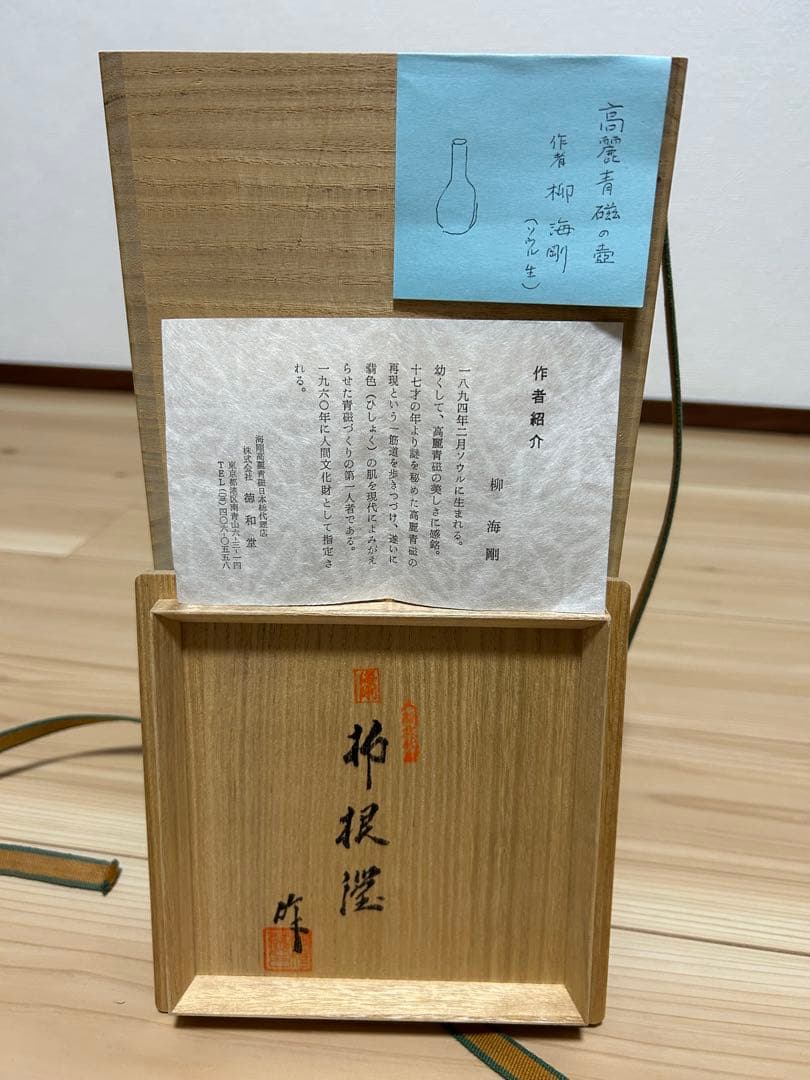 高麗青磁の壺
作者 柳海剛
(ソウル生)
作者紹介
柳海剛
一八九四年二月ソウルに生まれる。
幼くして、高麗青磁の美しさに感銘。
十七才の年より謎を秘めた高麗青磁の
再現という一筋道を歩きつづけ、遂いに
翡色(ひしょく)の肌を現代によみがえ
らせた青磁づくりの第一人者である。
一九六〇年に人間文化財として指定さ
れる。
海剛高麗青磁日本総代理店
株式会社 徳和堂
東京都港区南青山六-三-一四
TEL(代)四〇六-〇五五八
柳根瀅
作